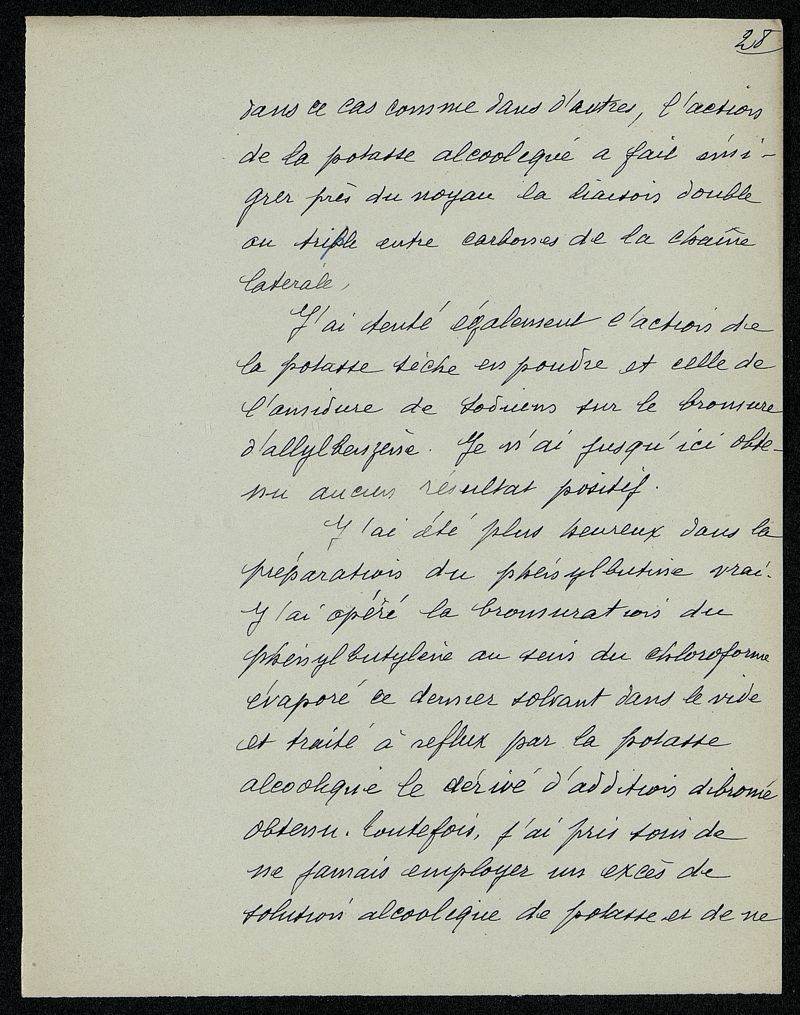 28
dans ce cas comme dans d'autres, l'action
de la potasse alcoolique a fait émi-
grer près du noyau la liaison double
ou triple entre carbones de la chaîne
latérale,
J'ai tenté également l'action de
la potasse sèche en poudre et celle de
l'amidure de sodium sur le bromure
d'allylbenzène. Je n'ai jusqu'ici obte-
nu aucun résultat positif.
J'ai été plus heureux dans la
préparation du phénylbutine vrai.
J'ai opéré la bromuration du
phénylbutylène au sein du chloroforme
évaporé ce dernier solvant dans le vide
et traité à reflux par la potasse
alcoolique le dérivé d'addition dibromé
obtenu. Toutefois, j'ai pris soin de
ne jamais employer un excès de
solution alcoolique de potasse et de ne